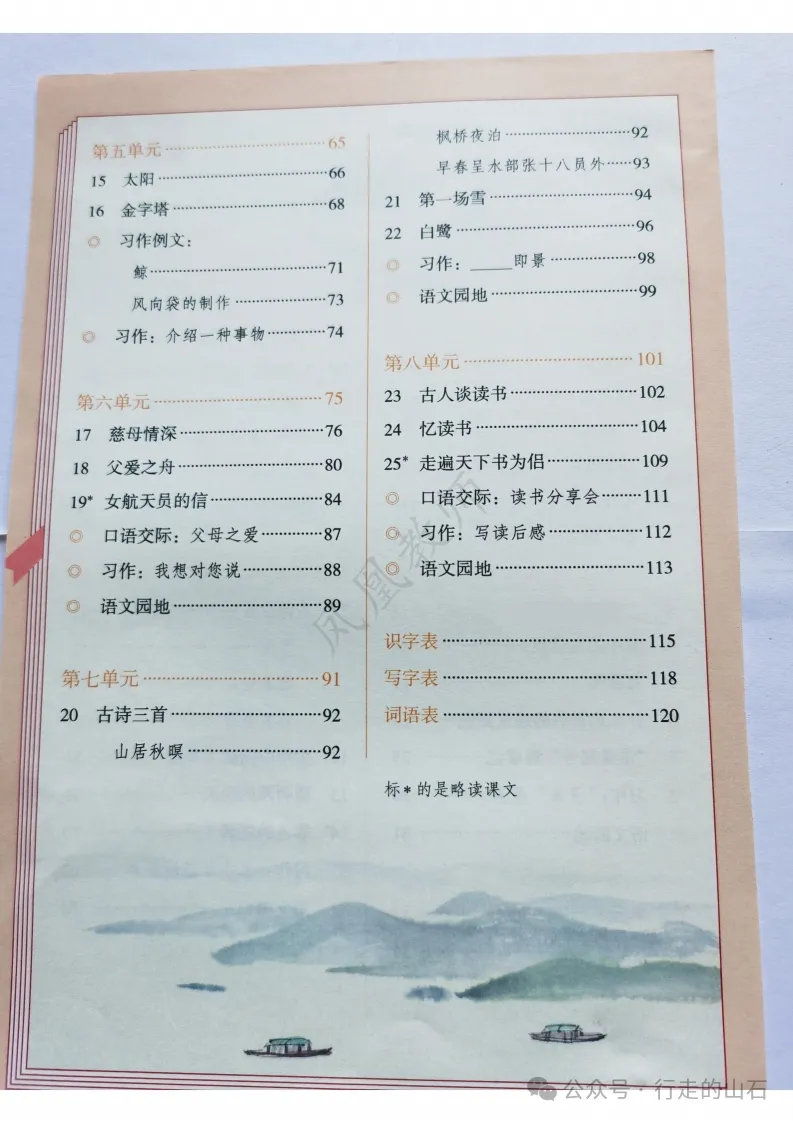 第五单元 65
15 太阳 66
16 金字塔 68
习作例文：
鲸 71
风向袋的制作 73
习作：介绍一种事物 74
第六单元 75
17 慈母情深 76
18 父爱之舟 80
19* 女航天员的信 84
口语交际：父母之爱 87
习作：我想对您说 88
语文园地 89
第七单元 91
20 古诗三首 92
山居秋暝 92
枫桥夜泊 92
早春呈水部张十八员外 93
21 第一场雪 94
22 白鹭 96
习作：_____即景 98
语文园地 99
第八单元 101
23 古人谈读书 102
24 忆读书 104
25* 走遍天下书为侣 109
口语交际：读书分享会 111
习作：写读后感 112
语文园地 113
识字表 115
写字表 118
词语表 120
标*的是略读课文
凤凰教师
公众号·行走的山石